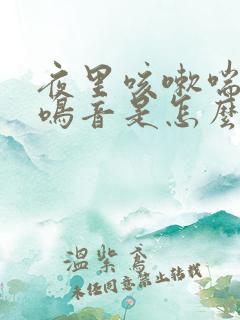 夜里咳嗽喘
鸣音是怎麼
温柴荛
未经同意禁止转载